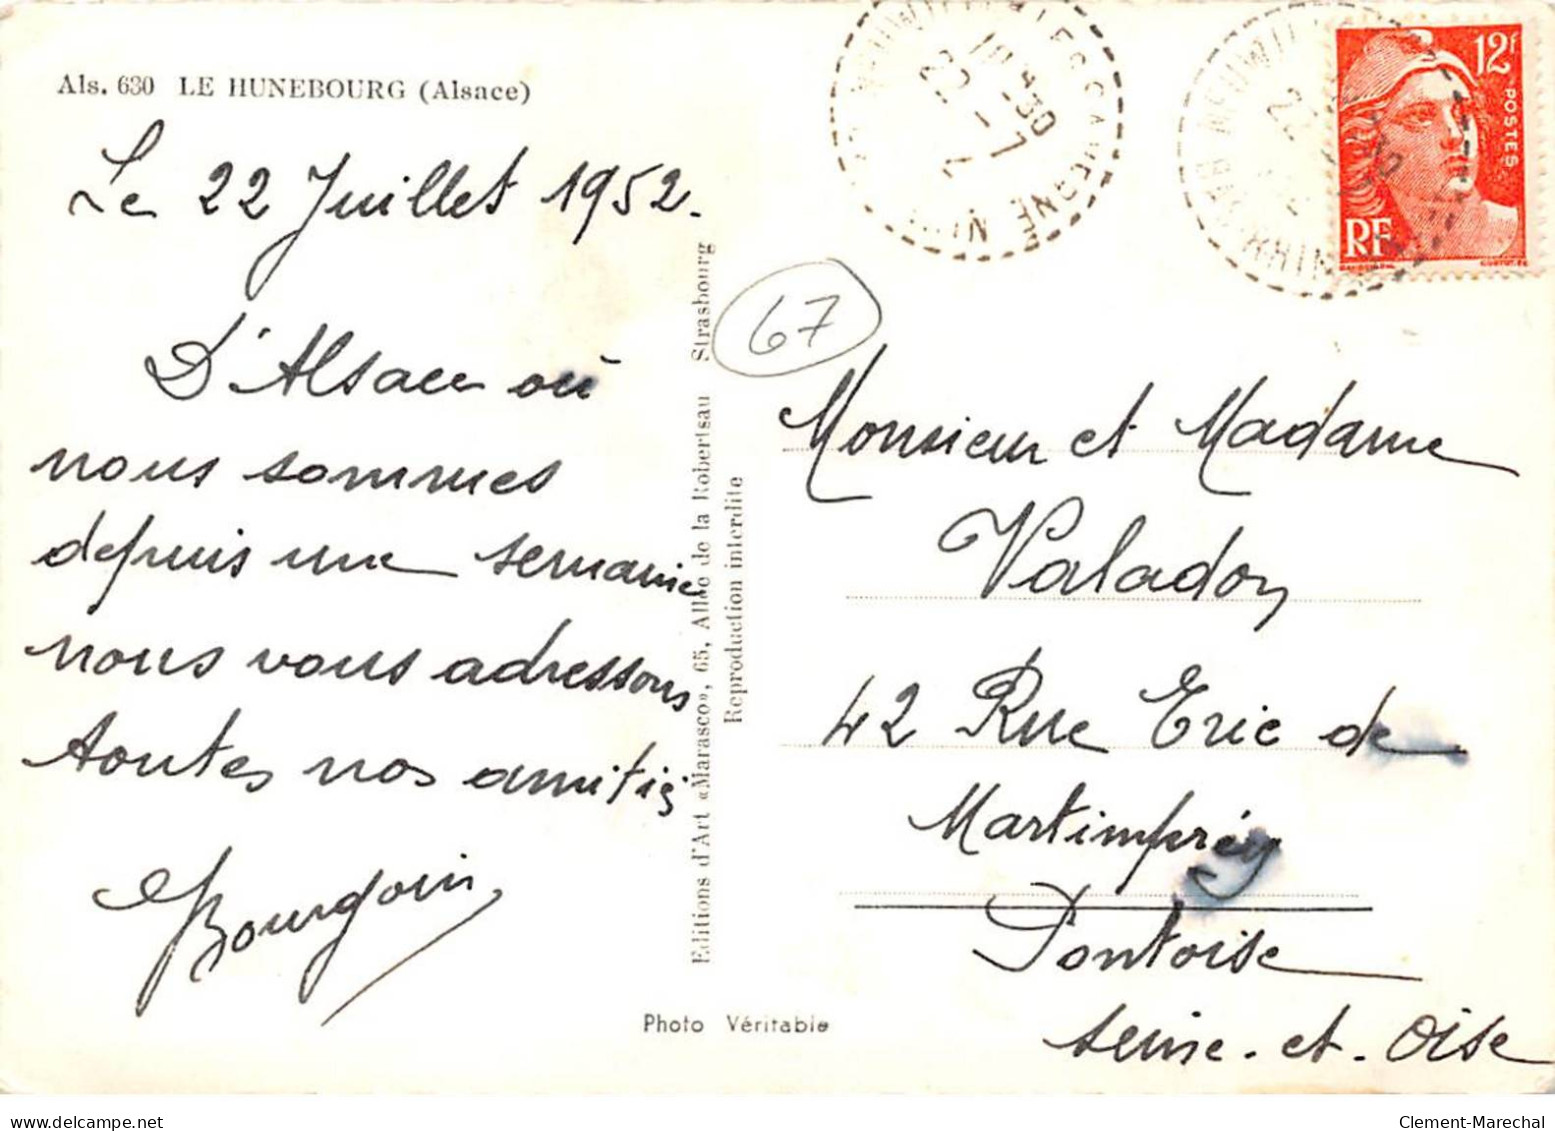 Als. 630 LE HUNEBOURG (Alsace)
Le 22 Juillet 1952.
D'Alsace où
nous sommes
depuis une semaine
nous vous adressons
toutes nos amitiés
Bourgoin
Editions d'Art «Marasco», 65, Allée de la Robertsau Strasbourg
Reproduction interdite
Photo Véritable
67
18 H 30
22 - 7
BAS-RHIN
12F
POSTES
RF
Monsieur et Madame
Valadon
42 Rue Eric de
Martimprey
Pontoise
Seine-et-Oise
Clement-Marechal